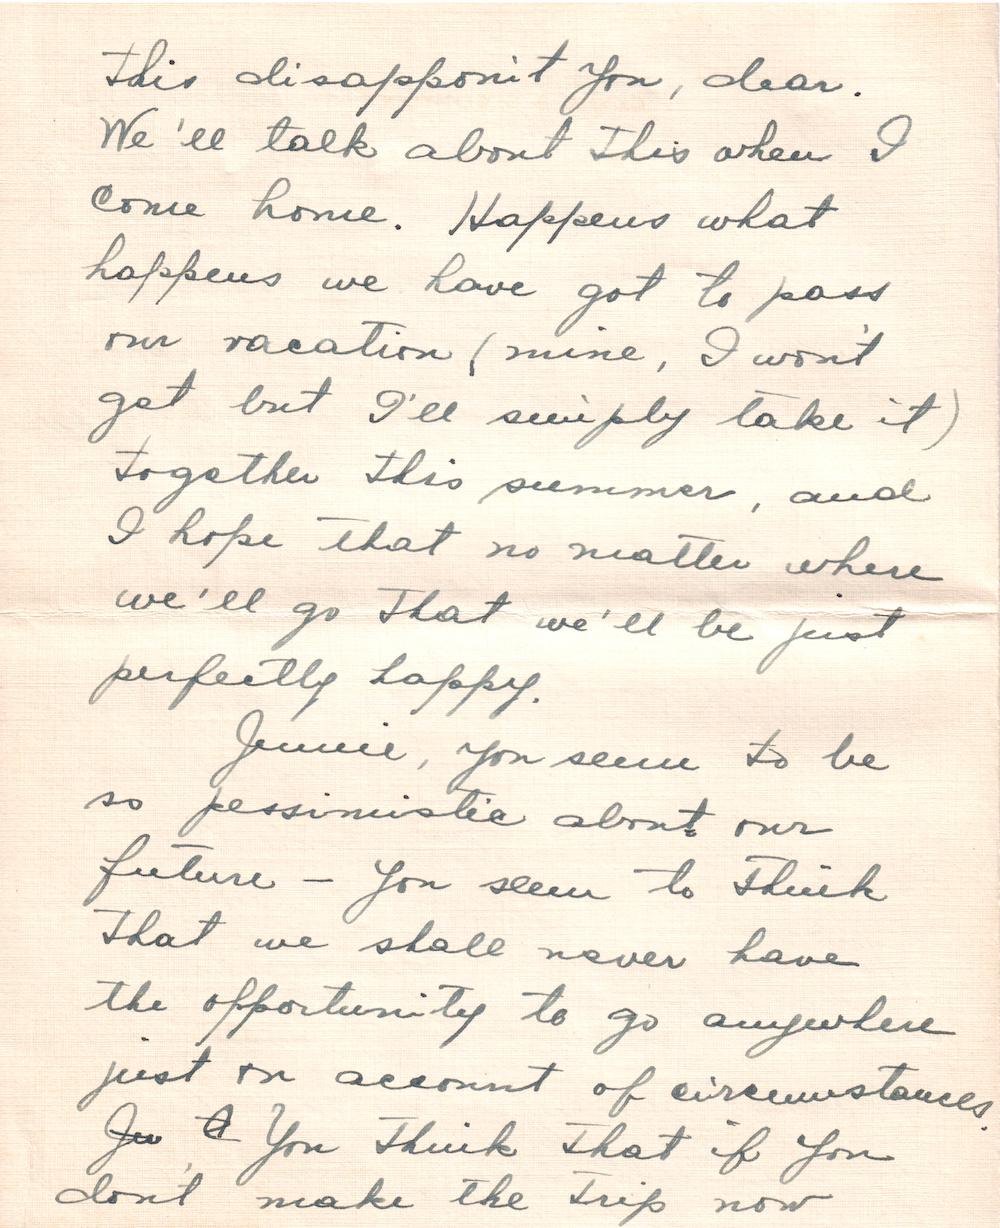 this disappoint you, dear.
We'll talk about this when I
come home. Happens what
happens we have got to pass
our vacation (mine, I won't
get but I'll simply take it)
together this summer, and
I hope that no matter where
we'll go that we'll be just
perfectly happy.
Jennie, you seem to be
so pessimistic about our
future – you seem to think
that we shall never have
the opportunity to go anywhere
just on account of circumstances.
You think that if you
don't make the trip now